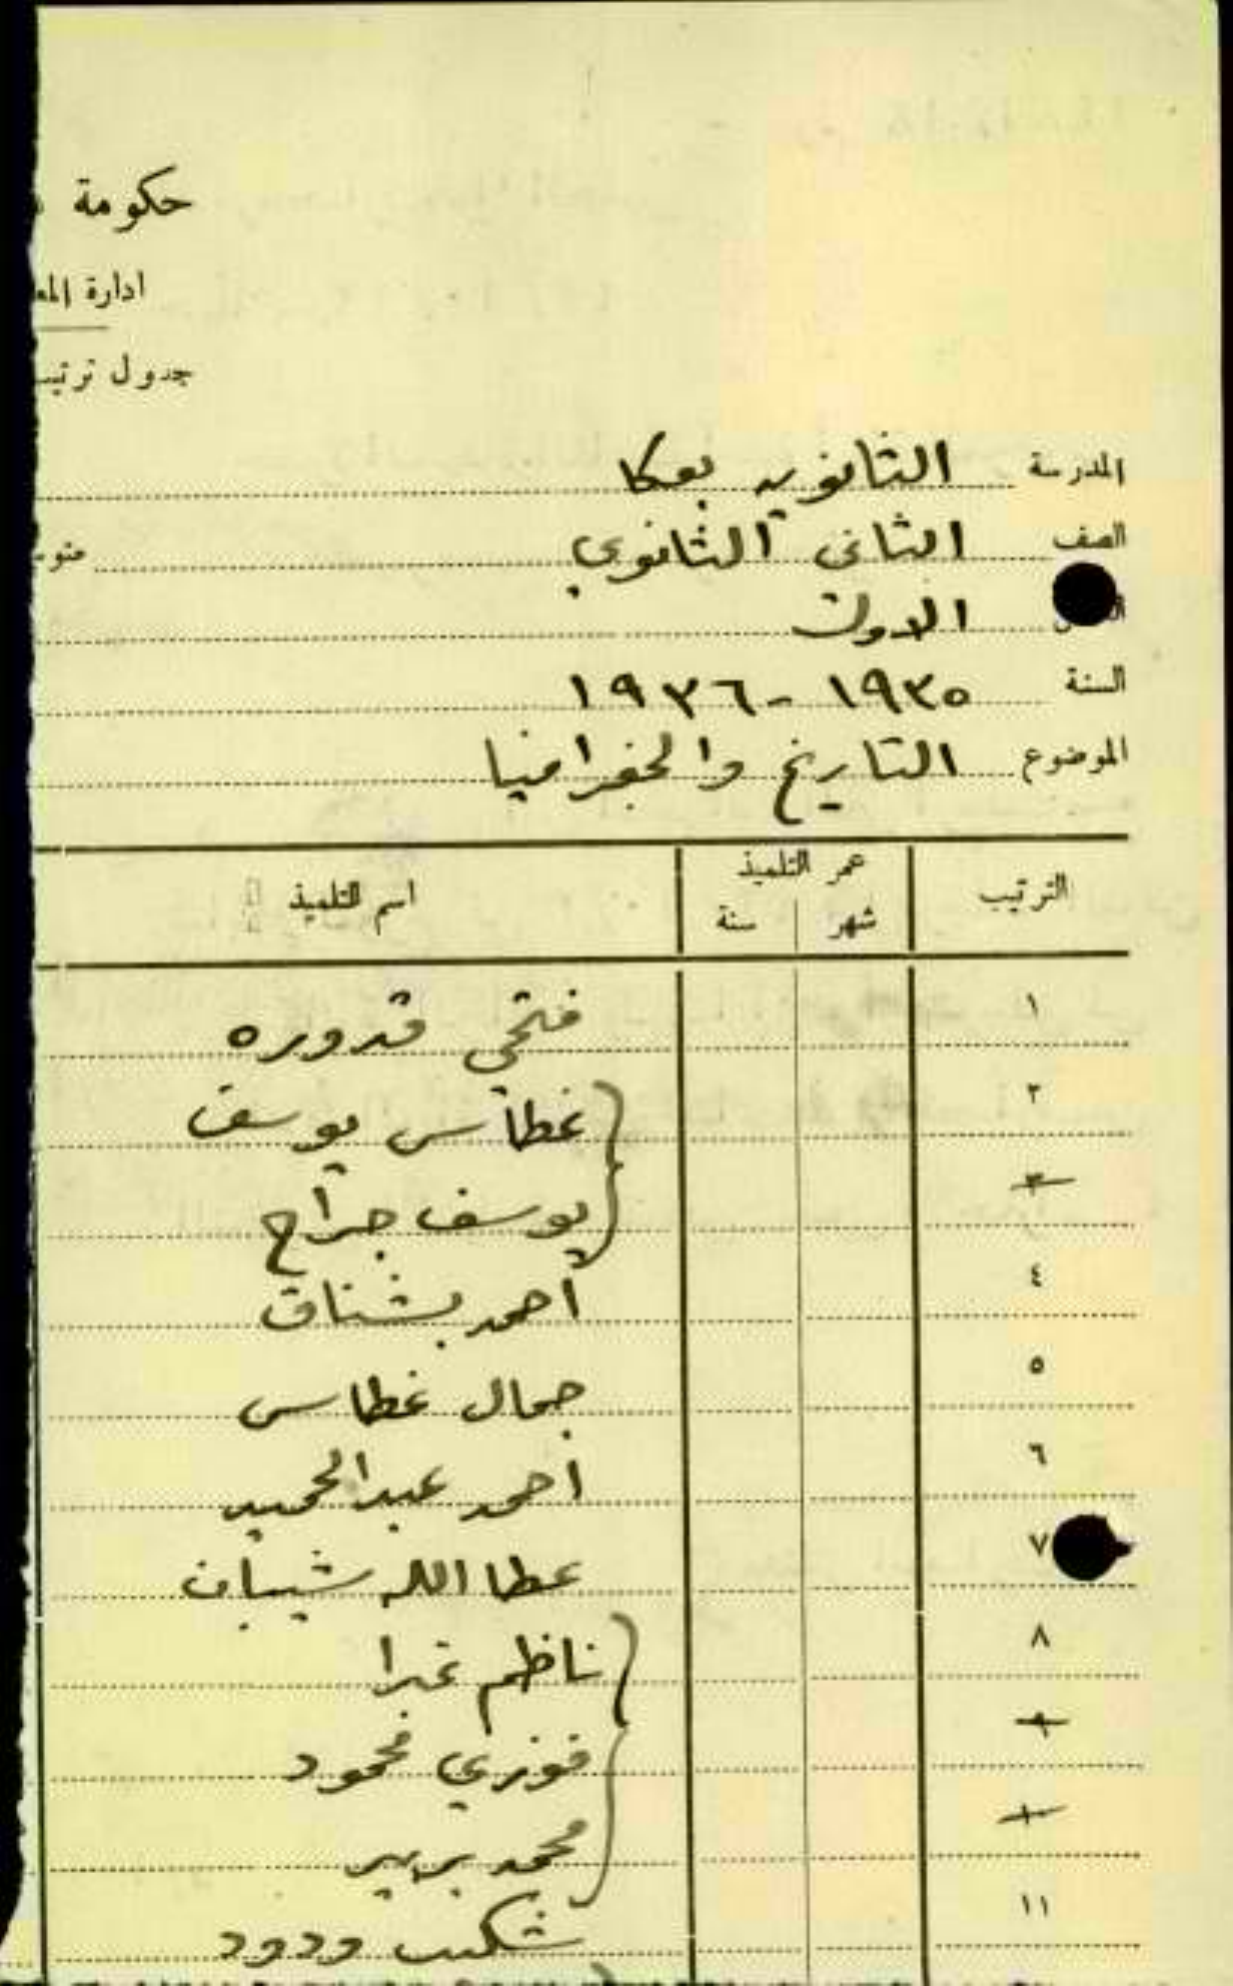 حكومة
ادارة المعا
جدول ترتيب
المدرسة الثانويه بعكا
الصف الثاني الثانوي متوس
الاول
السنة ١٩٣٥ - ١٩٣٦
الموضوع التاريخ والجغرافيا
الترتيب عمر التلميذ اسم التلميذ
شهر سنة
١ فتحي قدوره
٢ غطاس يوسف
٣ يوسف جراح
٤ احمد بشناق
٥ جمال غطاس
٦ احمد عبد الحميد
٧ عطا الله شيبان
٨ ناظم
٩ فوزي محمود
١٠ محمد بربير
١١ شكيب ودود